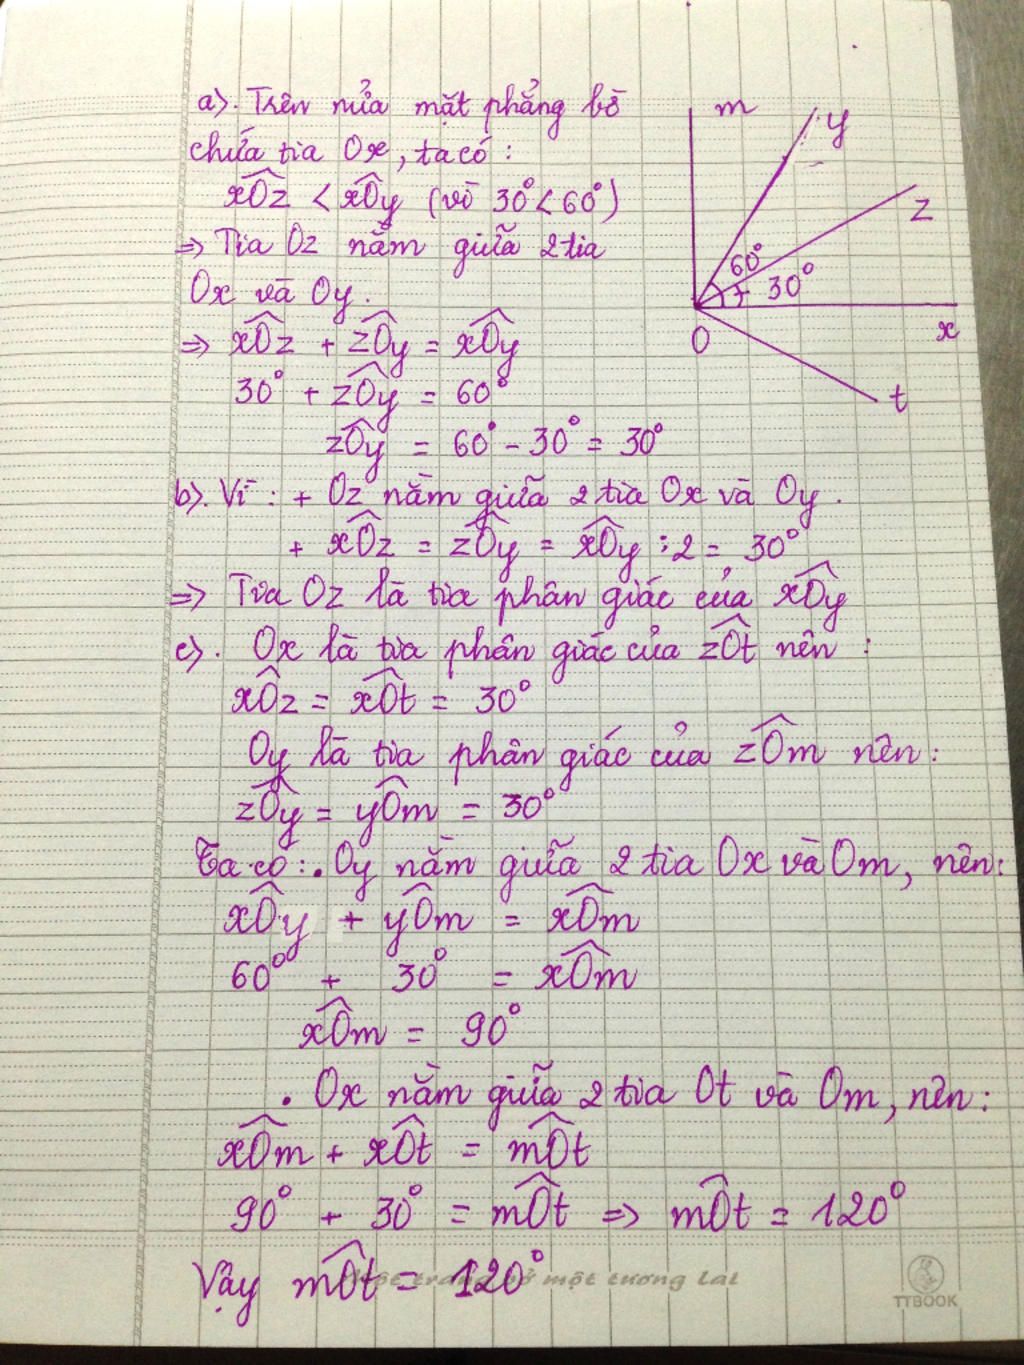 a). Trên nửa mặt phẳng bờ
chứa tia Ox, ta có:
xÔz < xÔy (vì 30° < 60°)
=> Tia Oz nằm giữa 2 tia
Ox và Oy.
=> xÔz + zÔy = xÔy
30° + zÔy = 60°
zÔy = 60° - 30° = 30°
m
y
z
60°
30°
O
x
t
b). Vì: + Oz nằm giữa 2 tia Ox và Oy.
+ xÔz = zÔy = xÔy : 2 = 30°
=> Tia Oz là tia phân giác của xÔy
c). Ox là tia phân giác của zÔt nên:
xÔz = xÔt = 30°
Oy là tia phân giác của zÔm nên:
zÔy = yÔm = 30°
Ta có: . Oy nằm giữa 2 tia Ox và Om, nên:
xÔy + yÔm = xÔm
60° + 30° = xÔm
xÔm = 90°
. Ox nằm giữa 2 tia Ot và Om, nên:
xÔm + xÔt = mÔt
90° + 30° = mÔt => mÔt = 120°
Vậy mÔt = 120°
một tương lai
TTBOOK